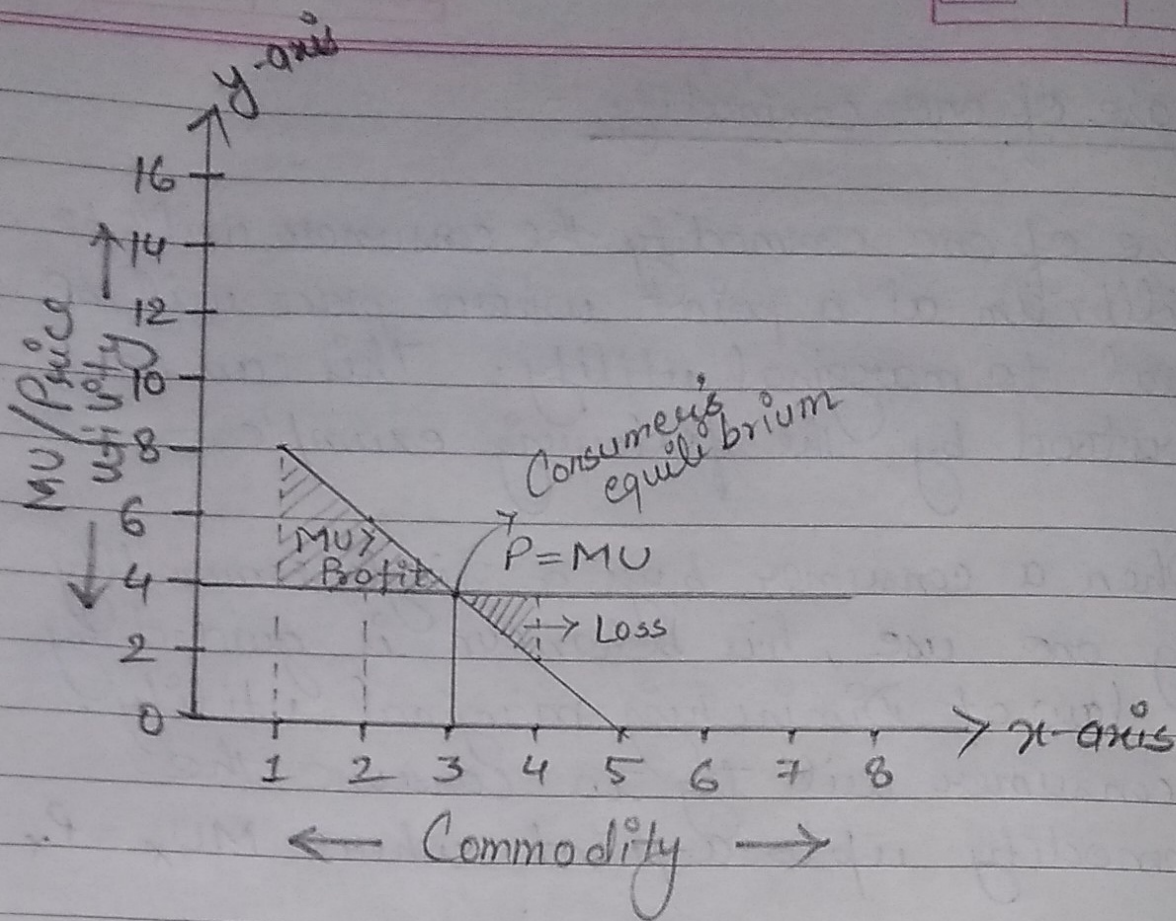 y-axis
16
14
12
10
8
6
4
2
0
MU/Price
Utility
Consumer's
equilibrium
MU>
Profit
P=MU
Loss
1 2 3 4 5 6 7 8
x-axis
Commodity